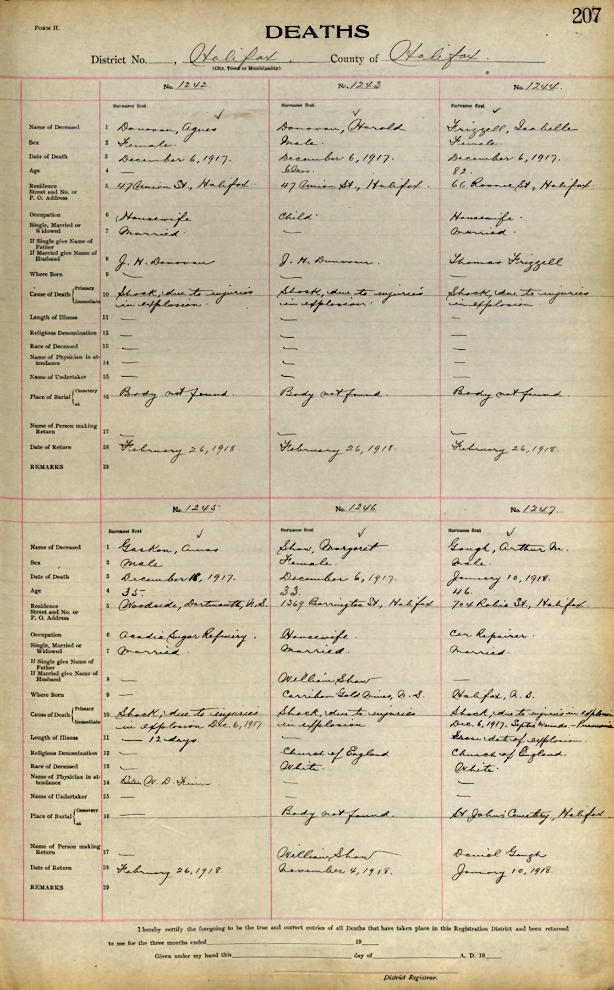 207
FORM II.
DEATHS
District No. , Halifax County of Halifax.
(City, Town or Municipality)
No. 1242 No. 1243 No. 1244
Surname first Surname first Surname first
Name of Deceased 1 Donovan, Agnes Donovan, Harold Frizzell, Isabelle
Sex 2 Female. Male. Female.
Date of Death 3 December 6, 1917. December 6, 1917. December 6, 1917.
Age 4 — 6 mos. 82.
Residence Street and No. or P. O. Address 5 47 Union St., Halifax. 47 Union St., Halifax. 66 St., Halifax.
Occupation 6 Housewife Child. Housewife.
Single, Married or Widowed 7 Married. — Married.
If Single give Name of Father
If Married give Name of Husband 8 J. H. Donovan J. H. Donovan. Thomas Frizzell
Where Born 9 — — —
Cause of Death Primary Immediate 10 Shock, due to injuries Shock, due to injuries Shock, due to injuries
in explosion. in explosion. in explosion.
Length of Illness 11 — — —
Religious Denomination 12 — — —
Race of Deceased 13 — — —
Name of Physician in attendance 14 — — —
Name of Undertaker 15 — — —
Place of Burial Cemetery at 16 Body not found. Body not found. Body not found.
Name of Person making Return 17 — — —
Date of Return 18 February 26, 1918. February 26, 1918. February 26, 1918.
REMARKS 19
No. 1245 No. 1246 No. 1247.
Surname first Surname first Surname first
Name of Deceased 1 Gaskon, Amos Shaw, Margaret Gough, Arthur M.
Sex 2 Male Female. Male.
Date of Death 3 December 18, 1917. December 6, 1917. January 10, 1918.
Age 4 35. 33. 46.
Residence Street and No. or P. O. Address 5 Woodside, Dartmouth, N.S. 1369 Barrington St., Halifax. 704 Robie St., Halifax.
Occupation 6 Acadia Sugar Refinery. Housewife. Car Repairer.
Single, Married or Widowed 7 Married. Married. Married.
If Single give Name of Father
If Married give Name of Husband 8 — William Shaw —
Where Born 9 — Gold Mines, N. S. Halifax, N. S.
Cause of Death Primary Immediate 10 Shock, due to injuries Shock, due to injuries Shock, due to injuries in explosion
in explosion Dec. 6, 1917 in explosion Dec. 6, 1917. Septic Wounds - Pneumonia
Length of Illness 11 — 12 days. — From date of explosion.
Religious Denomination 12 — Church of England Church of England.
Race of Deceased 13 — White. White.
Name of Physician in attendance 14 Dr. W. D. — —
Name of Undertaker 15 — — —
Place of Burial Cemetery at 16 — Body not found. St. John's Cemetery, Halifax.
Name of Person making Return 17 — William Shaw Daniel Gough
Date of Return 18 February 26, 1918. November 4, 1918. January 10, 1918.
REMARKS 19
I hereby certify the foregoing to be the true and correct entries of all Deaths that have taken place in this Registration District and been returned
to me for the three months ended 19
Given under my hand this day of A. D. 19
District Registrar.